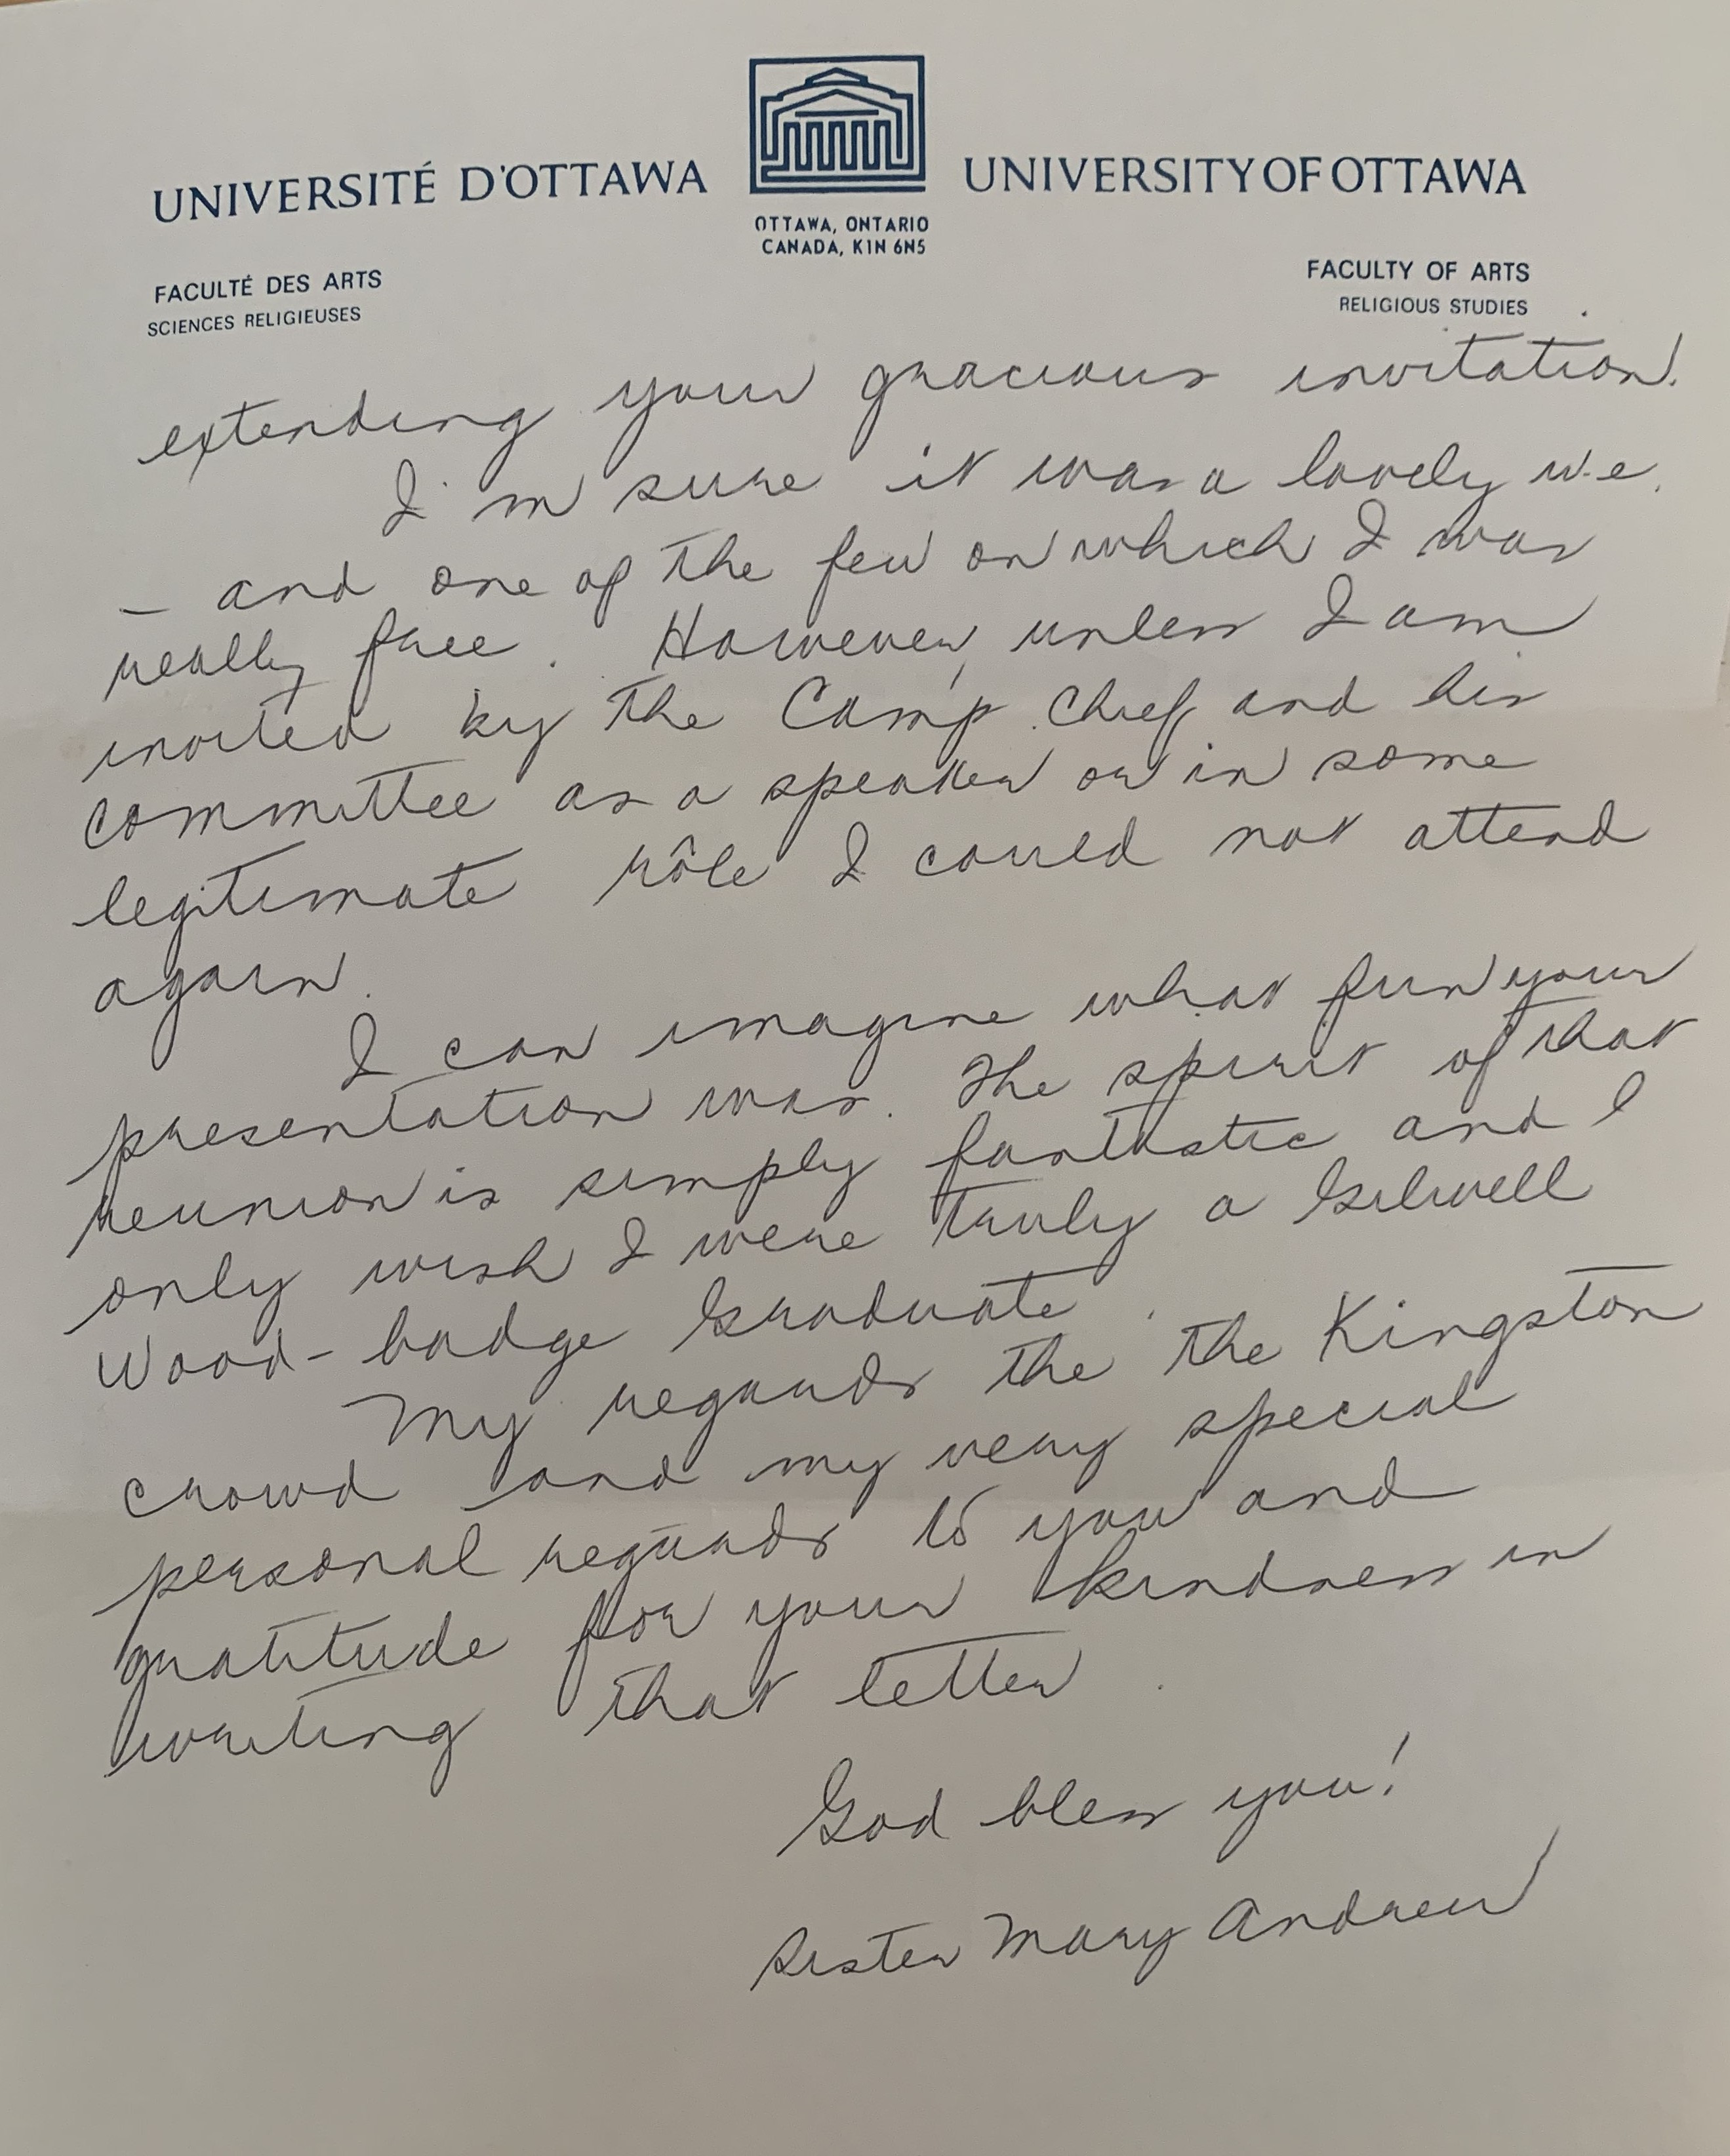 UNIVERSITÉ D'OTTAWA UNIVERSITY OF OTTAWA
OTTAWA, ONTARIO
CANADA, K1N 6N5
FACULTÉ DES ARTS FACULTY OF ARTS
SCIENCES RELIGIEUSES RELIGIOUS STUDIES
extending your gracious invitation.
I'm sure it was a lovely w.e.
– and one of the few on which I was
really free. However, unless I am
invited by the Camp Chief and his
committee as a speaker or in some
legitimate rôle I could not attend
again.
I can imagine what fun your
presentation was. The spirit of that
reunion is simply fantastic and I
only wish I were truly a Gilwell
Wood-badge Graduate.
My regards the the Kingston
crowd and my very special
personal regards to you and
gratitude for your kindness in
writing that letter.
God bless you!
Sister Mary Andrew